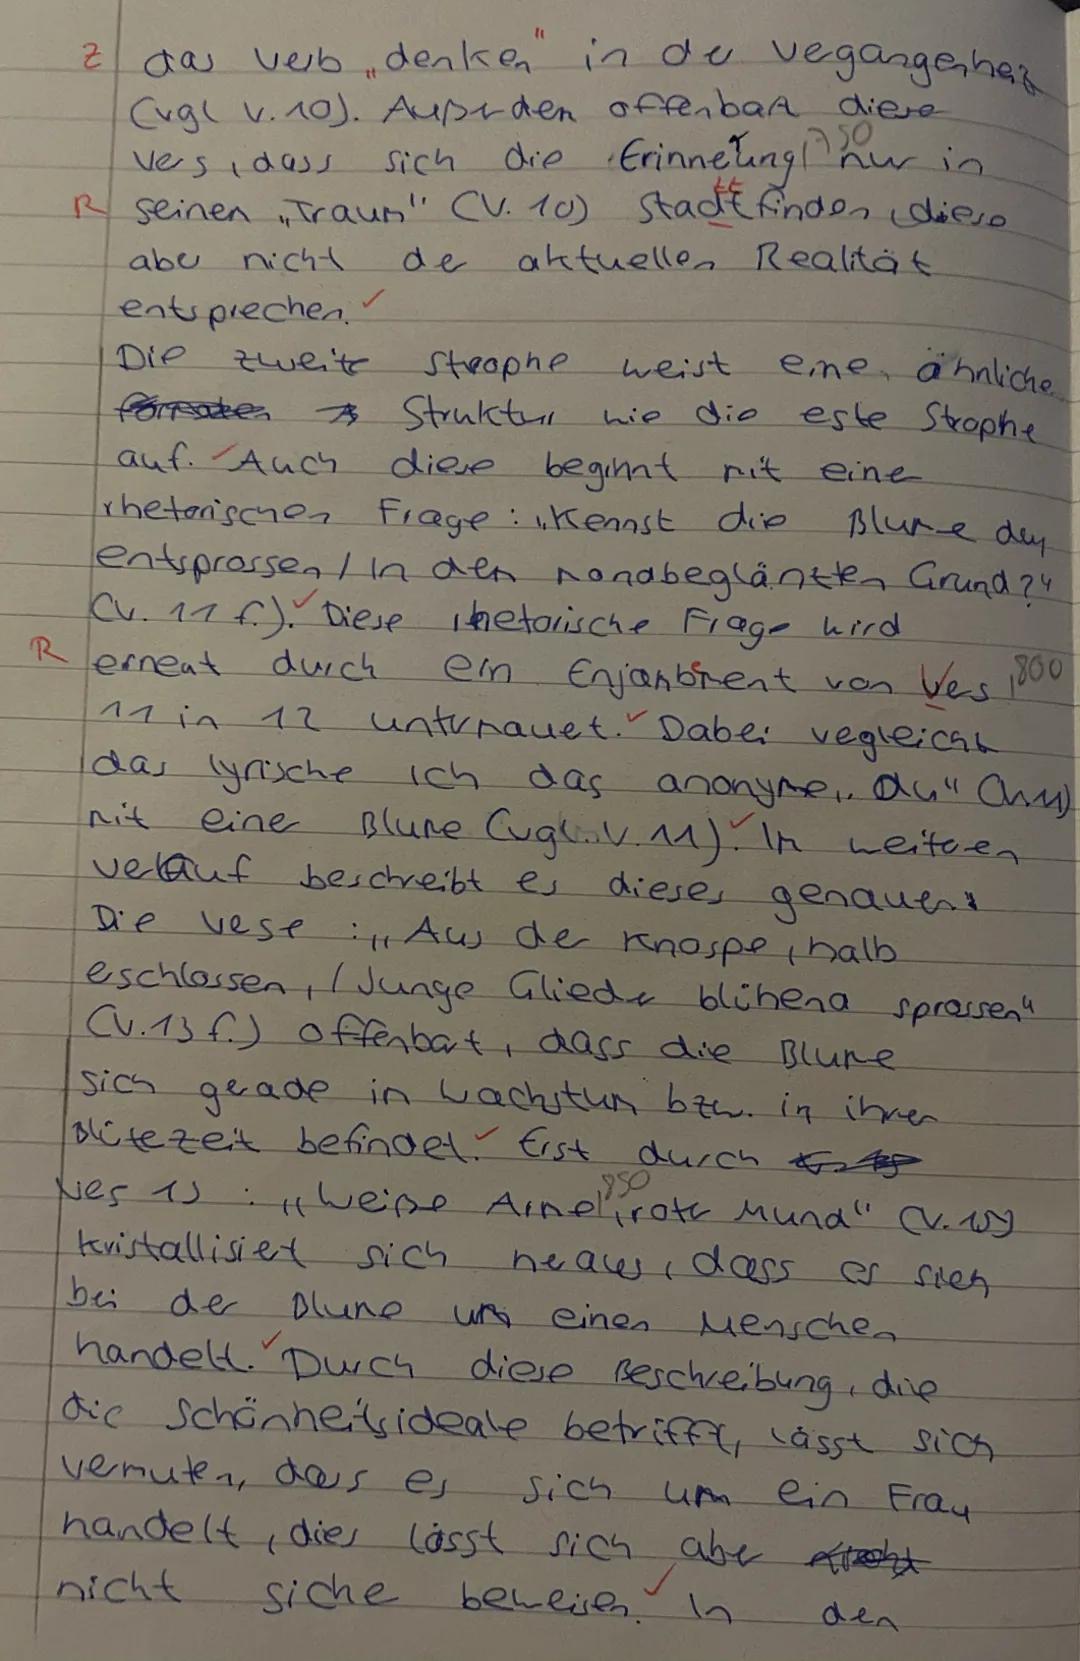 Z das Verb „denken" in der Vergangenheit
(vgl V. 10). Außerdem offenbart dieser
Vers, dass sich die Erinnerung 750 nur in
R seinen „Traum" (V. 10) stadtfinden tt, diese
aber nicht der aktuellen Realität
entsprechen. ✓
Die zweite Strophe weist eine ähnliche
Struktur wie die erste Strophe
auf. ✓ Auch diese beginnt mit einer
rhetorischen Frage: „Kennst die Blume, der
entsprossen / In dem mondbeglänzten Grund?"
(V. 11 f.). ✓ Diese rhetorische Frage wird
R erneut durch ein Enjambment e von Vers 800
11 in 12 untermauert. ✓ Dabei vergleicht
das lyrische Ich das anonyme „Du" (V. 11)
mit einer Blume (vgl. V. 11) ✓. Im weiteren
Verlauf beschreibt es dieses genauer:
Die Verse: „Aus der Knospe, halb
erschlossen, / Junge Glieder blühend sprossen"
(V. 13 f.) offenbart, dass die Blume
sich gerade in Wachstum bzw. in ihrer
Blütezeit befindet. ✓ Erst durch
Vers 15: „Weiße Arme 850, roter Mund" (V. 15)
kristallisiert sich heraus, dass es sich
bei der Blume um einen Menschen
handelt. ✓ Durch diese Beschreibung, die
die Schönheitsideale betrifft, lässt sich
vermuten, dass es sich um ein Frau
handelt, dies lässt sich aber
nicht sicher beweisen. ✓ In den